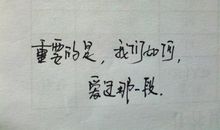 重要的是，我们如何，
爱过那一段．